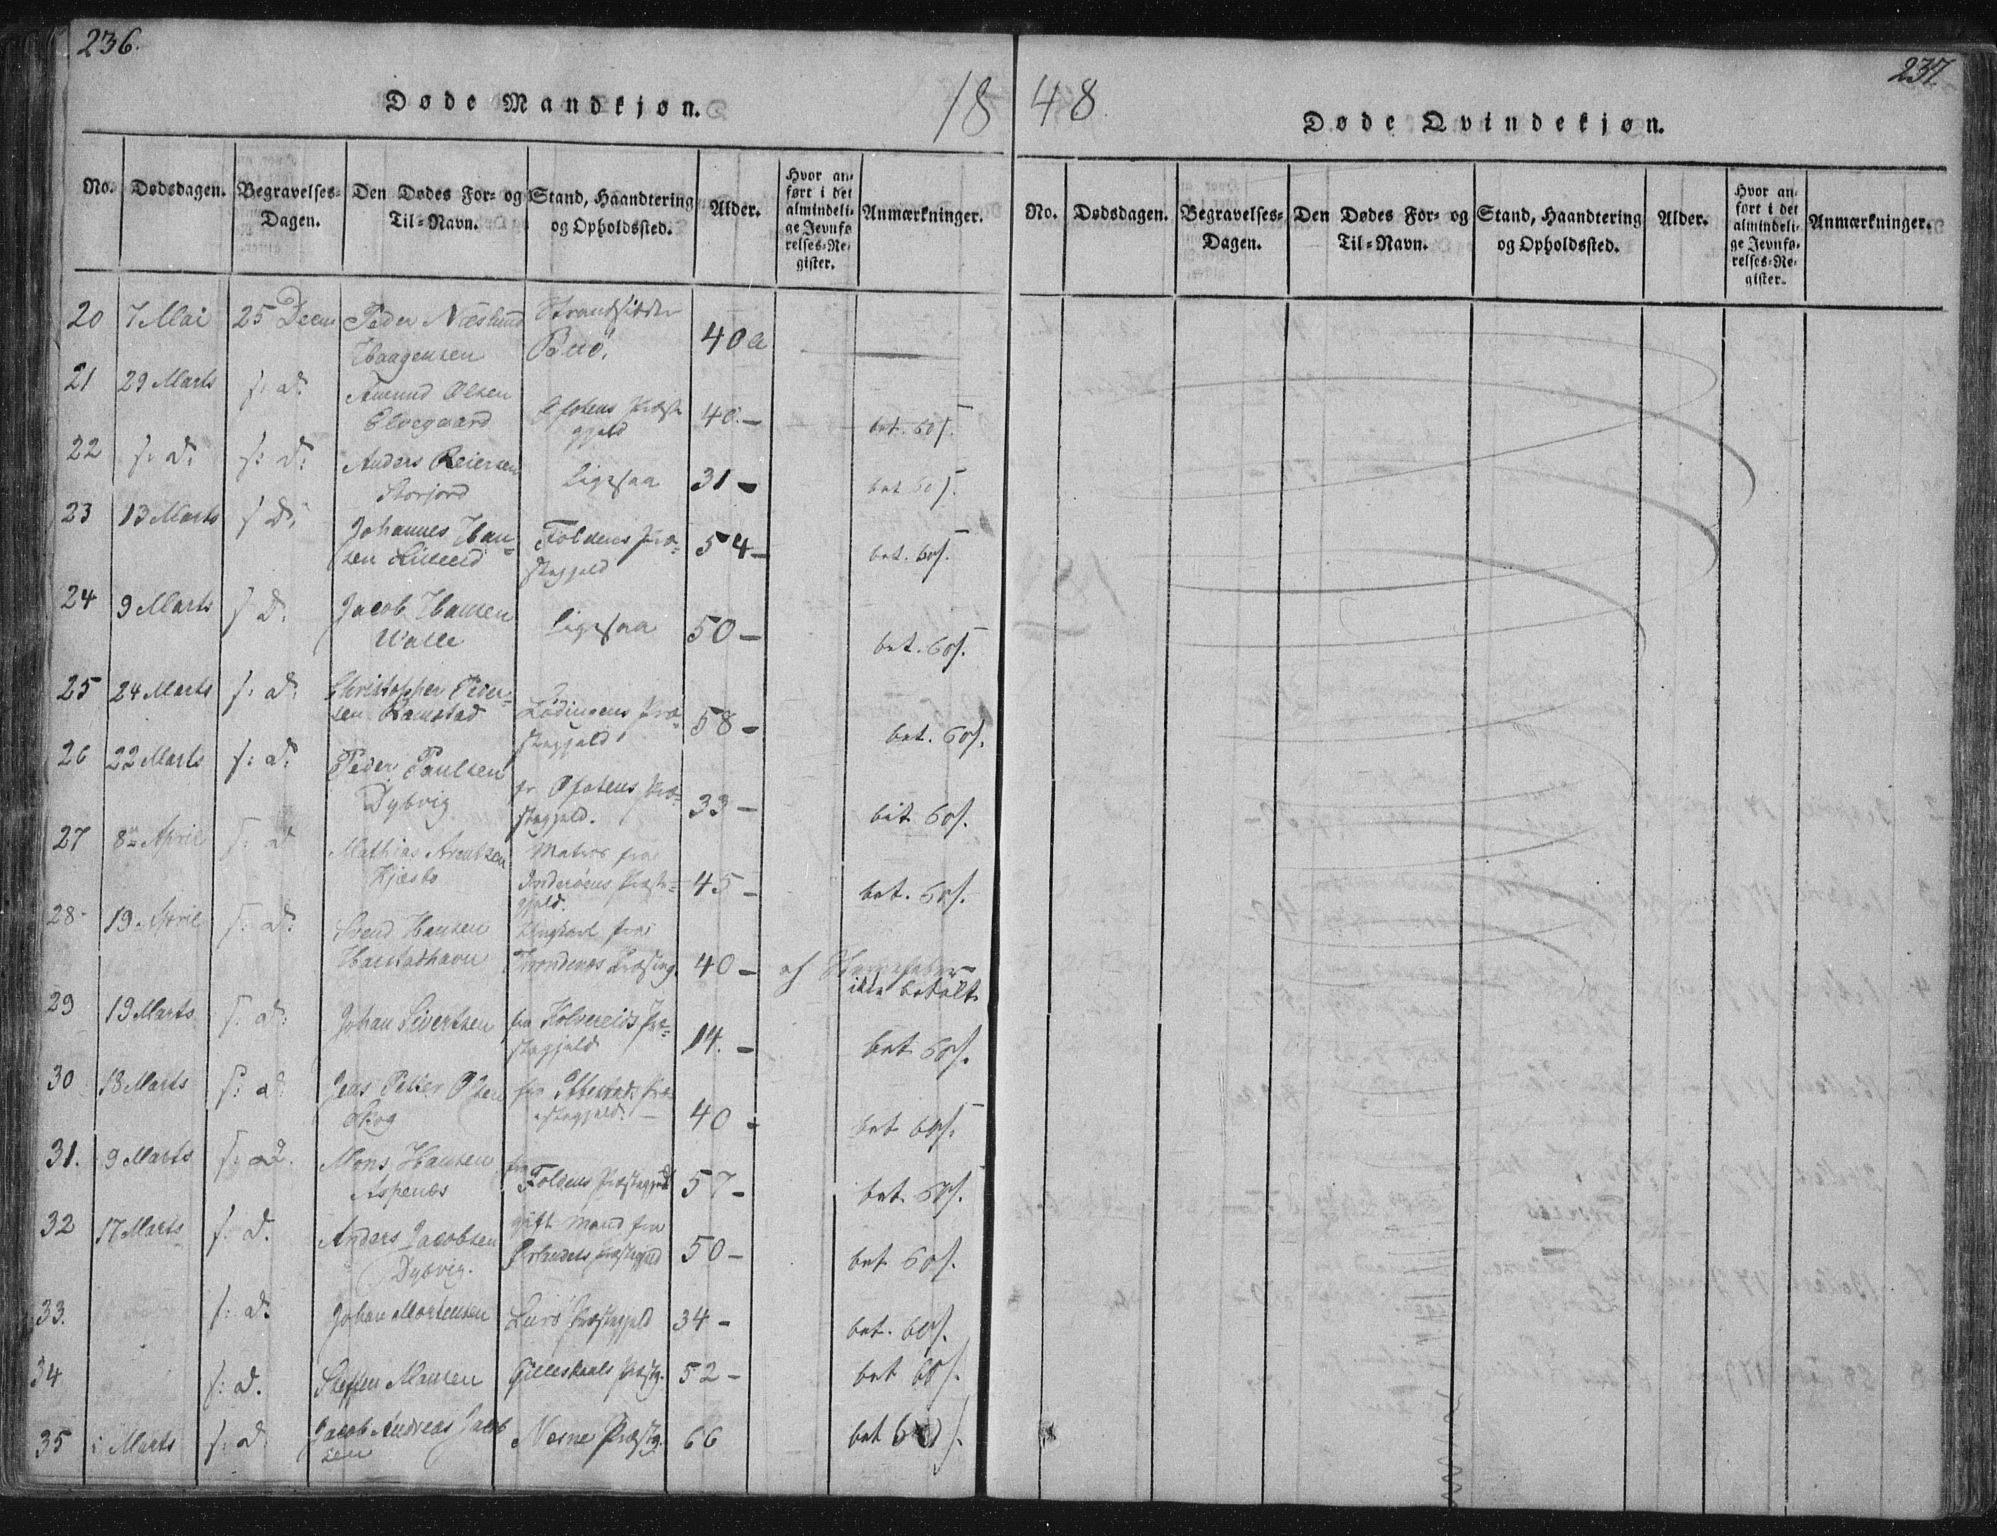 236.
Døde Mandkjøn.
18
No.
Dødsdagen.
Begravelses-
Dagen.
Den Dødes For- og
Til-Navn.
Stand, Haandtering
og Opholdssted.
Alder.
Hvor an-
ført i det
almindeli-
ge Jevnfø
relses-Re-
gister.
Anmærkninger.
20 7 Mai 25 Decm Peder Næslund Strandsidder
Haagensen Buö. 40 a
21 29 Marts s: D: Amund Olsen
Elvegaard Ofotens Præste
gjeld 40.- bet. 60 s.
22 s: D: s: D: Anders Reiersen
Storjord Ligesaa 31 - bet 60 s.
23 13 Marts s: D: Johannes Han-
sen Foldens Præ-
stegjeld 54 - bet. 60 s.
24 9 Marts s: D: Jacob Hansen
Valle Ligesaa 50 - bet. 60 s.
25 24 Marts s: D: Christopher Peder-
sen Lödingens Præ-
stegjeld 58 - bet. 60 s.
26 22 Marts s: D: Peder Paulsen
Dybvig fr Ofotens Præ-
stegjeld. 33 - bet 60 s.
27 8 April s: D Mathias Arentsen
Matros fra
Inderöens Præste-
gjeld. 45 - bet. 60 s.
28 19 April s: D: Hansen
Harstadhavn fra
Trondenæs Præsteg. 40 - af
ikke betalt
29 19 Marts s: D: Johan Sivertsen fra Kolvereids Præ-
stegjeld 14. - bet 60 s.
30 18 Marts s: D Jens Petter Olsen
Skog fra Ibestads Præ-
stegjeld. 40 - bet 60 s.
31. 9 Marts s: D. Mons Hansen
Aspenæs fra
Foldens Præstegjeld 57 - bet 60 s.
32 17 Marts s: D. Anders Jacobsen
Dybvig. gift Mand fra
Præstegjeld 50 - bet 60 s.
33. s: D. Johan Mortensen Lurö Præstegjeld 34 - bet. 60 s.
34 s: D. Steffen Gilleskaals Præstg. 52 - bet 60 s.
35 Marts s: D. Jacob Andreas Jacob
sen Nesne Præstg. 66 bet
237.
48
Døde Qvindekjøn.
No.
Dødsdagen.
Begravelses-
Dagen.
Den Dødes For- og
Til-Navn.
Stand, Haandtering
og Opholdssted.
Alder.
Hvor an-
ført i det
almindeli-
ge Jevnfø-
relses-Re-
gister.
Anmærkninger.